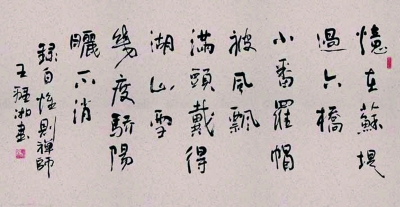 憶在蘇堤
過六橋
小番羅帽
被風飄
滿頭戴得
湖山雪
幾度驕陽
曬不消
録自惟則禪師
王魯湘書